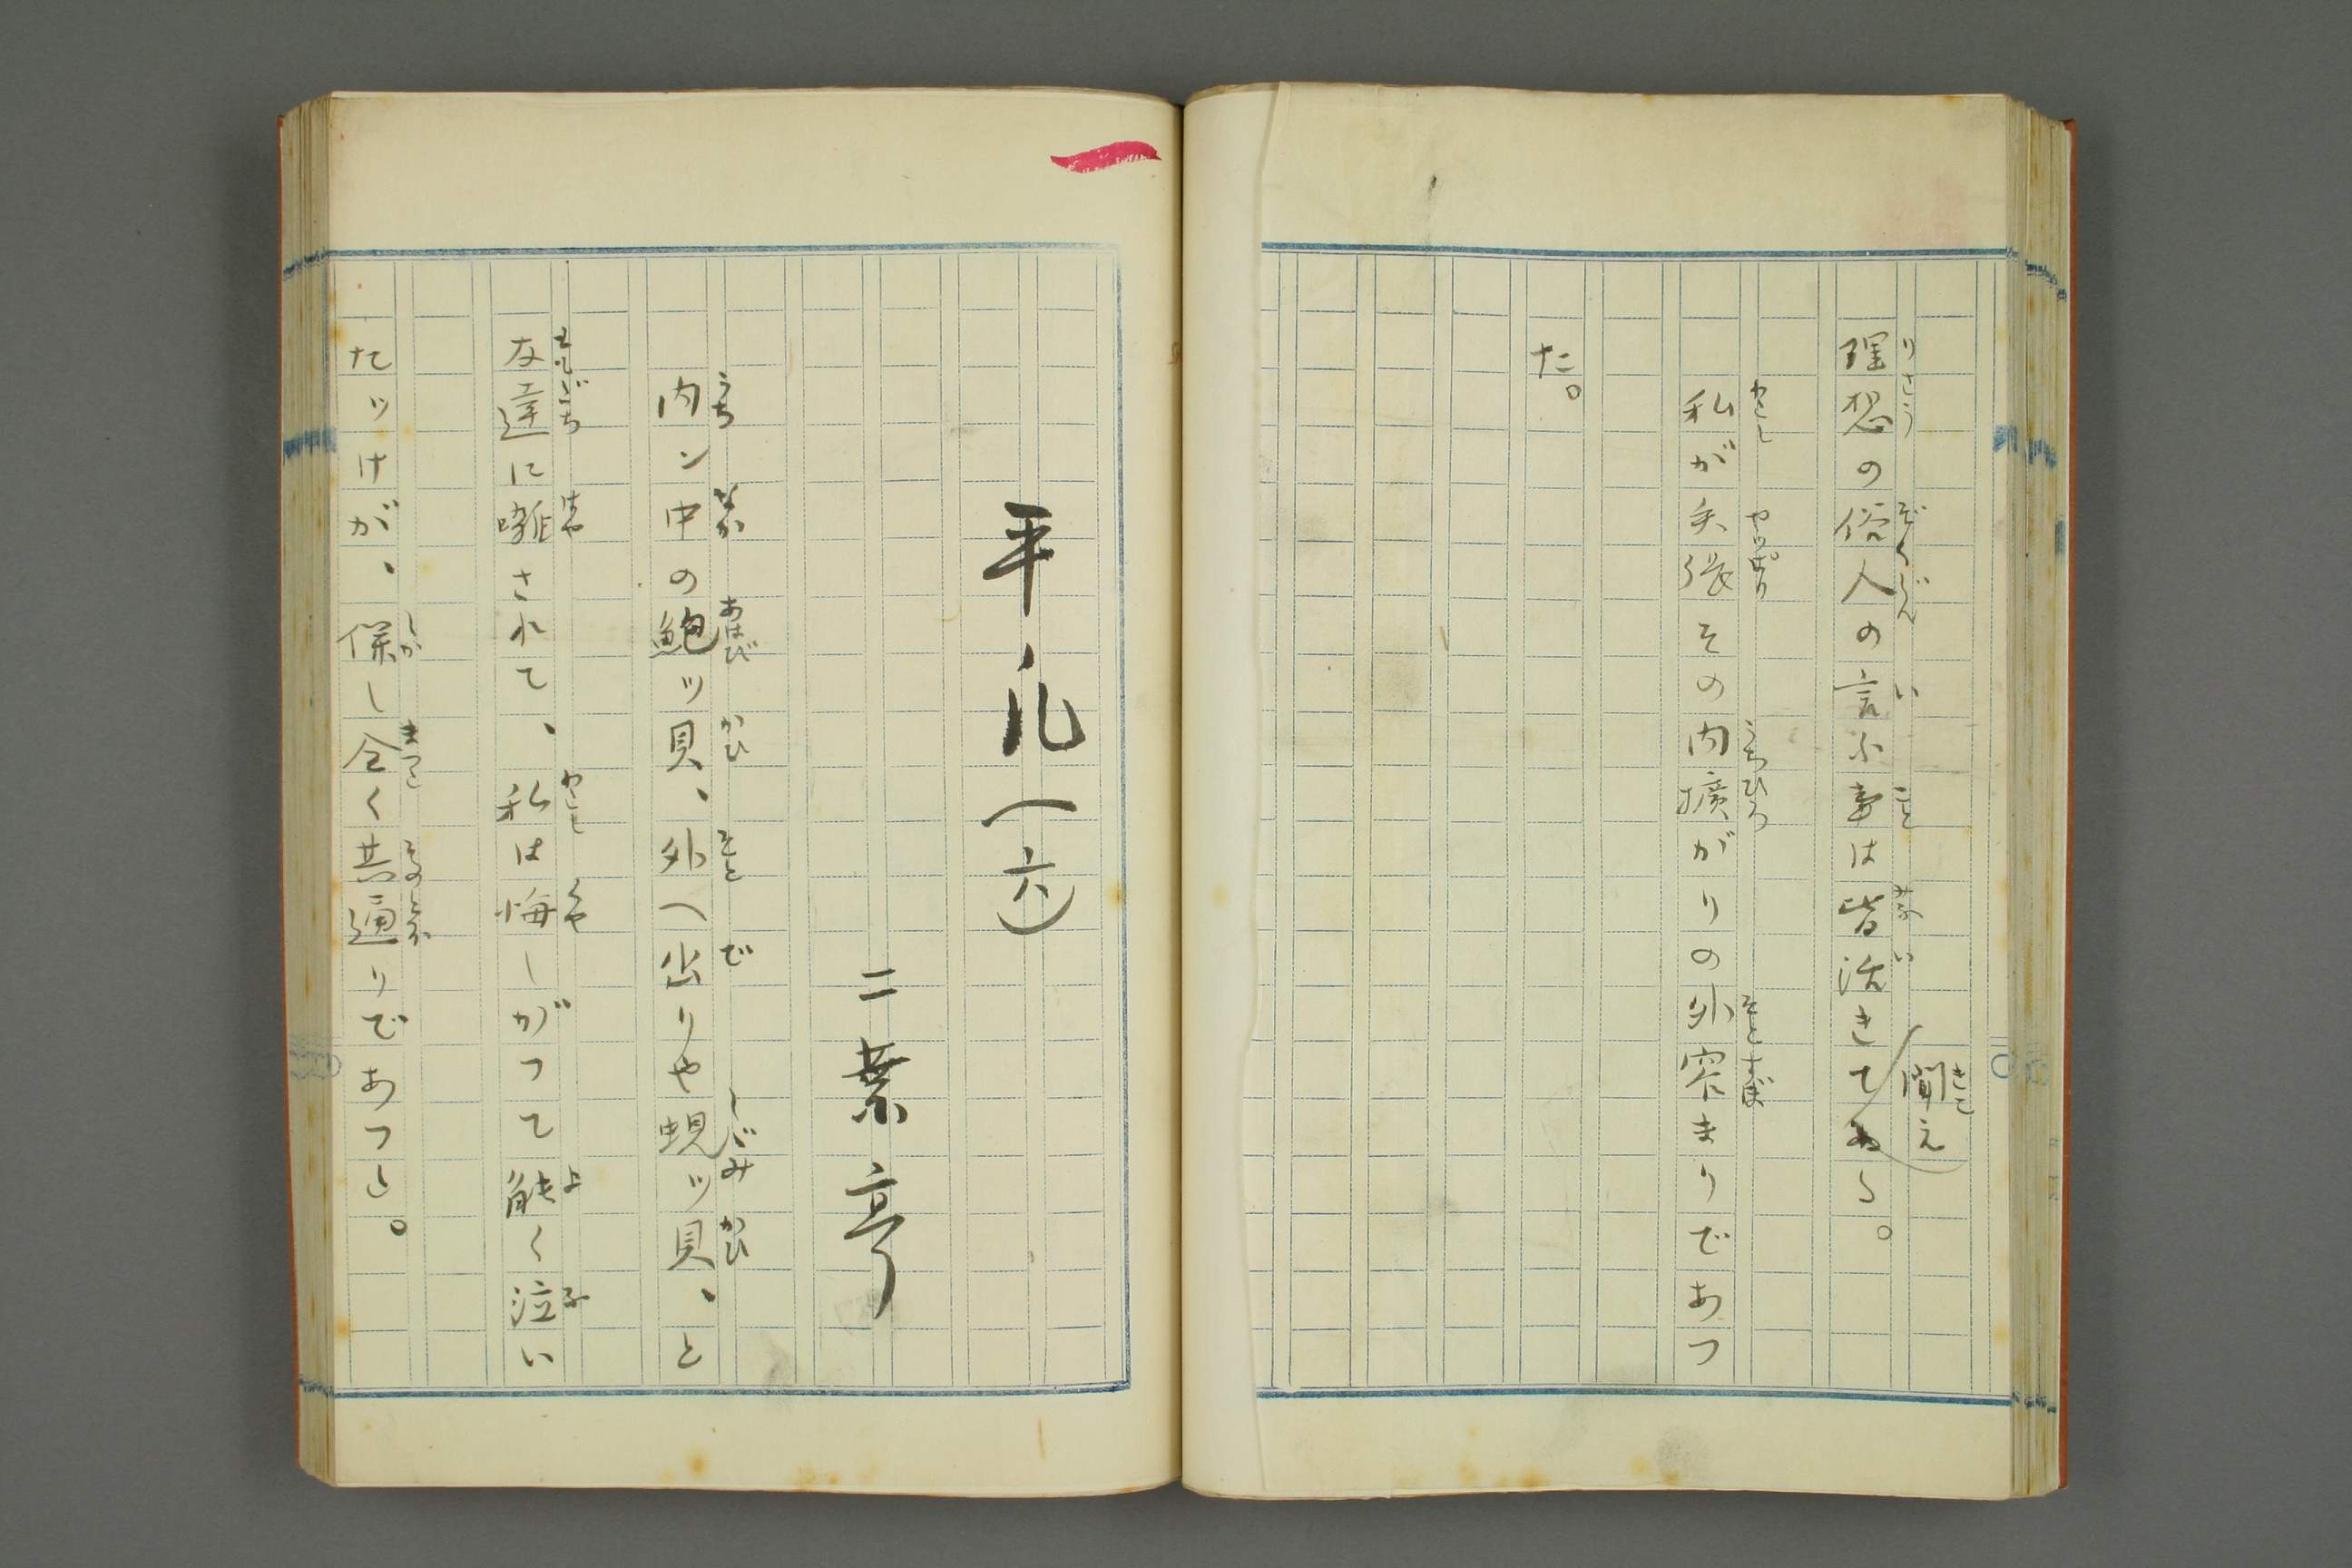 理想の俗人の言ふ事は皆活きて聞える。
私が矢張その内擴がりの外窄まりであつ
た。
平凡(六)
二葉亭
内ン中の鮑ッ貝、外へ出りや蜆ッ貝、と
友達に囃されて、私は悔しがつて能く泣い
たッけが、併し全く其通りであつた。